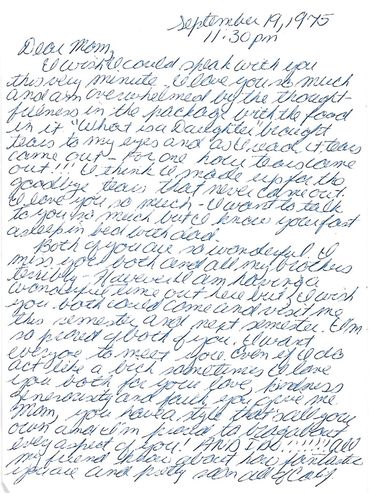 September 19, 1975
11:30 pm
Dear Mom,
I wish I could speak with you
this very minute. I love you so much
and am overwhelmed by the thought-
fulness in the package with the food
in it "What is a Daughter" brought
tears to my eyes and as I read it tears
came out - for one hour tears came
out!!! I think I made up for the
goodbye tears that never came out.
I love you so much - I want to talk
to you so much but I know your fast
asleep in bed with dad.
Both of you are so wonderful. I
miss you both and all my brothers
terribly - I am having a
wonderful time out here but I wish
you both could come and visit me
this semester and next semester. I'm
so proud of both of you. I want
everyone to meet you even if I do
act like a bich sometimes. I love
you both for your love, kindness
generosity and faith you give me
Mom, you have a style that's all your
own and I'm proud to brag about
every aspect of you! AND I DO.....!!!!! All
my friend know about how fantastic
you are and pretty soon all of Calif.